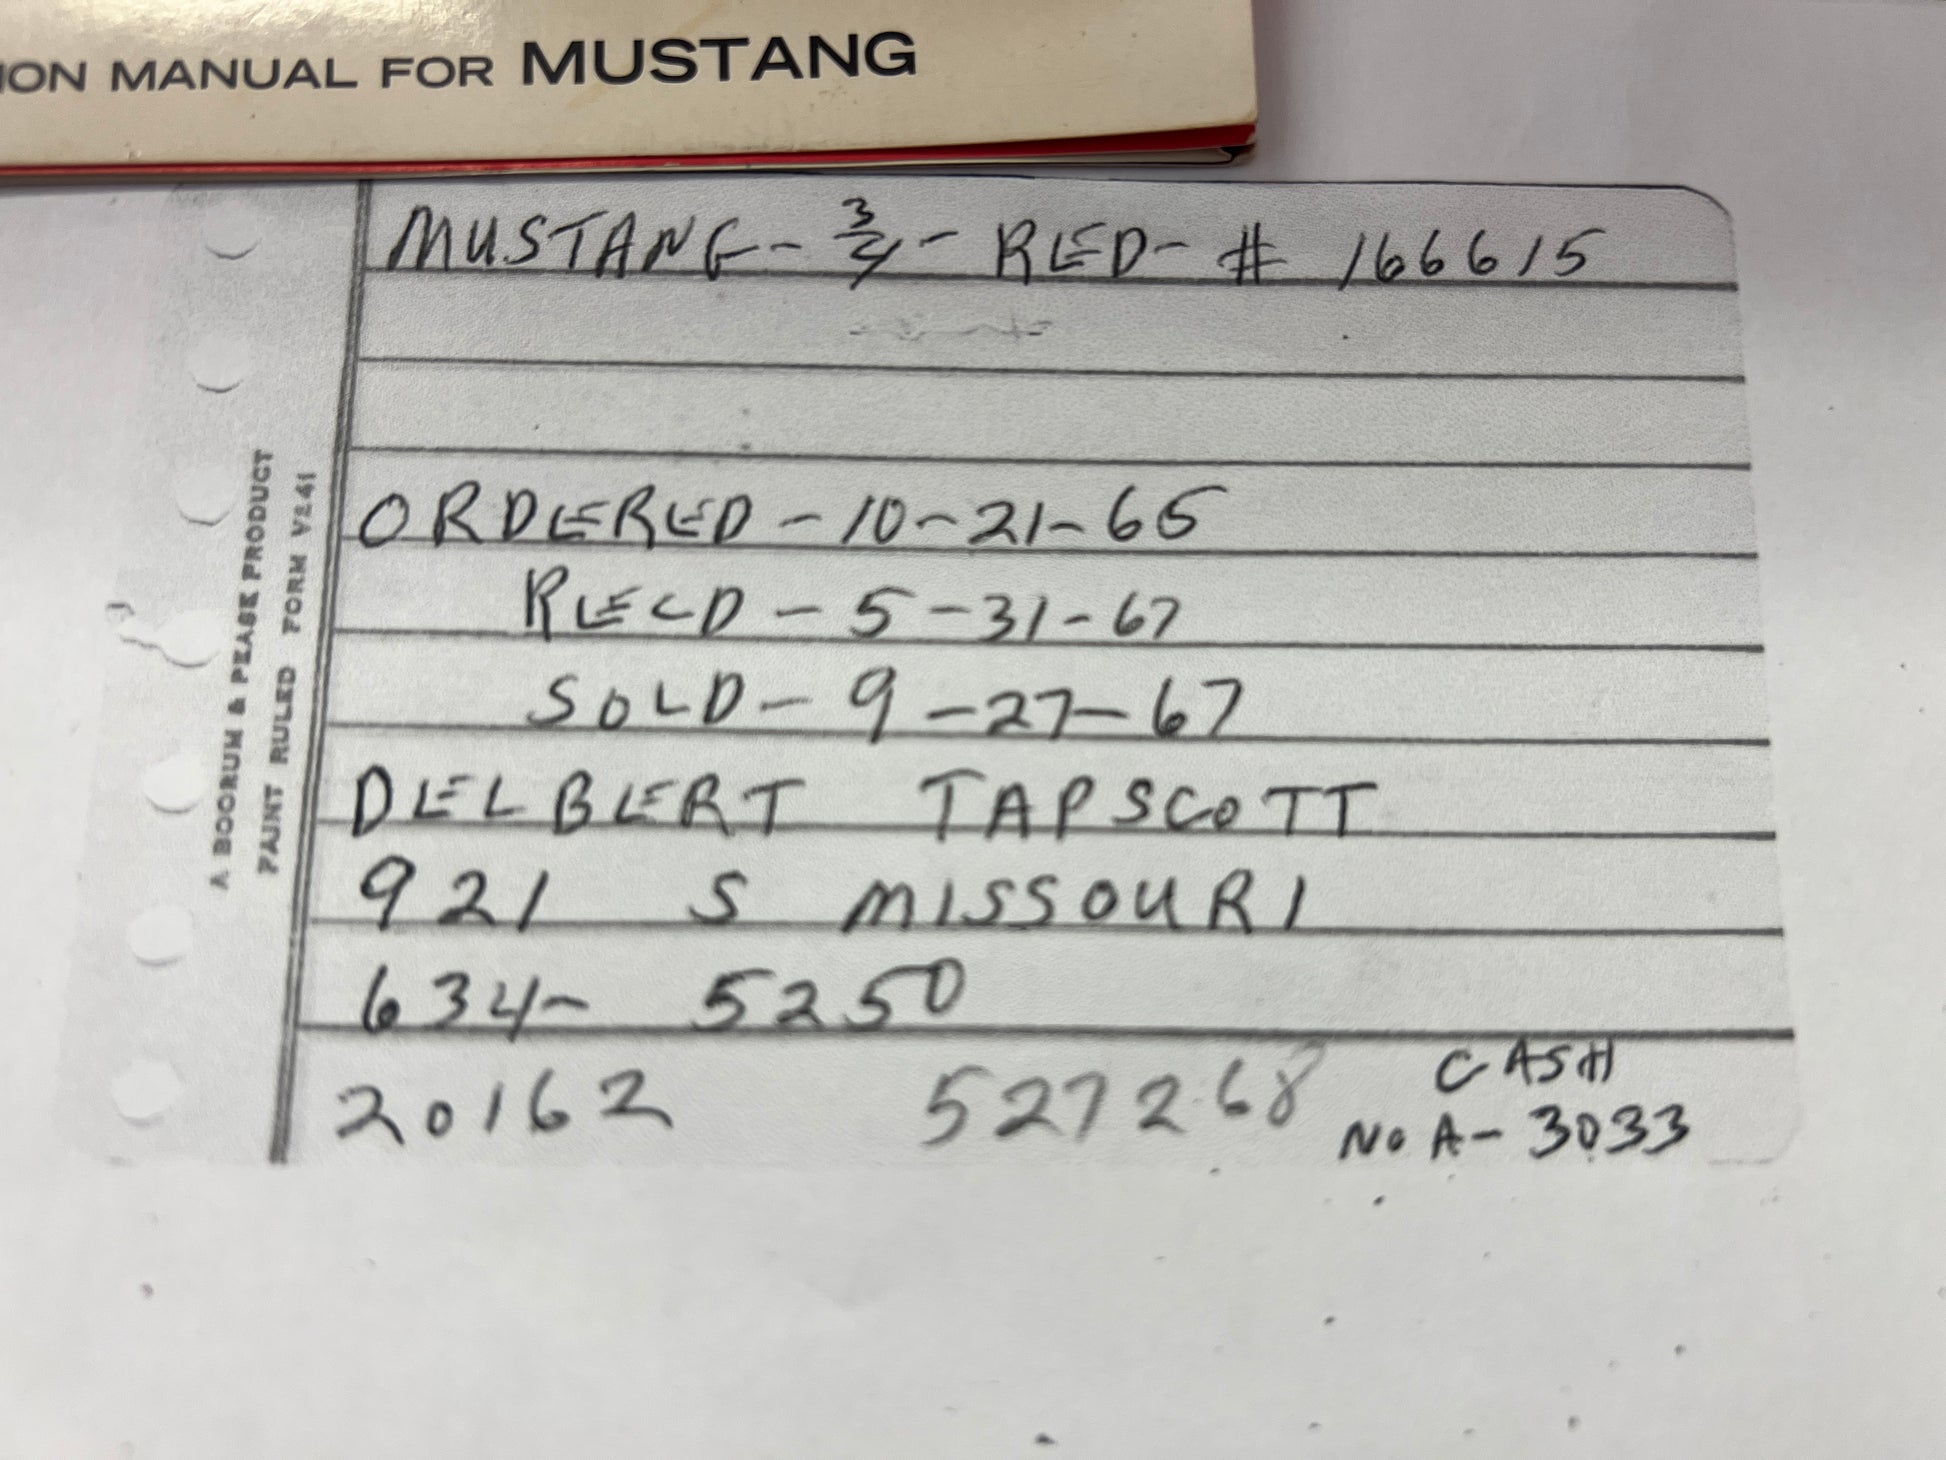 ION MANUAL FOR MUSTANG
MUSTANG - 3/4 - RED - # 166615
ORDERED - 10-21-65
RECD - 5-31-67
SOLD - 9-27-67
DELBERT TAPSCOTT
921 S MISSOURI
634- 5250
20162 527268
CASH
No A- 3033
A BOORUM & PEASE PRODUCT
FAINT RULED FORM VL41